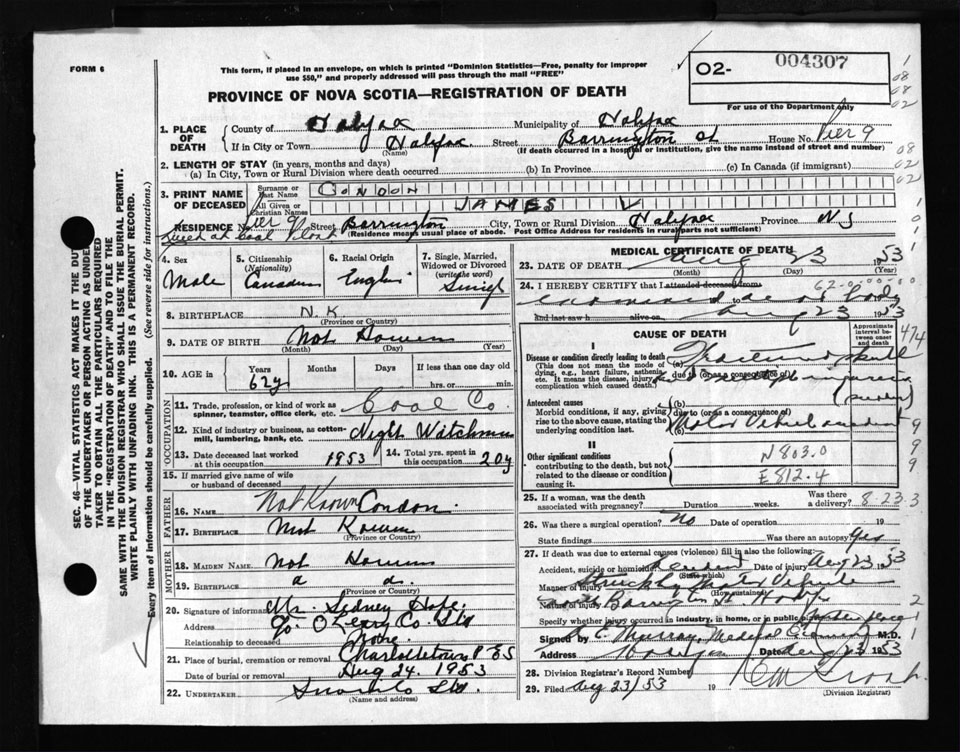 FORM 6
This form, if placed in an envelope, on which is printed "Dominion Statistics—Free, penalty for improper
use $50," and properly addressed will pass through the mail "FREE"
O2- 004307
For use of the Department only
PROVINCE OF NOVA SCOTIA—REGISTRATION OF DEATH
1. PLACE OF DEATH
County of Halifax Municipality of Halifax
If in City or Town Halifax (Name) Street Barrington St House No. Pier 9
(If death occurred in a hospital or institution, give the name instead of street and number)
2. LENGTH OF STAY (in years, months and days)
(a) In City, Town or Rural Division where death occurred (b) In Province (c) In Canada (if immigrant)
3. PRINT NAME OF DECEASED
Surname or Last Name CONDON
All Given or Christian Names JAMES V
RESIDENCE No. Pier 9 Street Barrington City, Town or Rural Division Halifax Province N S
(Residence means usual place of abode. Post Office Address for residents in rural parts not sufficient)
4. Sex
Male
5. Citizenship (Nationality)
Canadian
6. Racial Origin
English
7. Single, Married, Widowed or Divorced (write the word)
Single
8. BIRTHPLACE N.K
(Province or Country)
9. DATE OF BIRTH Not Known
(Month) (Day) (Year)
10. AGE in Years Months Days If less than one day
62y hrs. or min.
OCCUPATION
11. Trade, profession, or kind of work as spinner, teamster, office clerk, etc. Coal Co.
12. Kind of industry or business, as cotton-mill, lumbering, bank, etc. Night Watchman
13. Date deceased last worked at this occupation 1953
14. Total yrs. spent in this occupation 20y
15. If married give name of wife or husband of deceased
FATHER
16. NAME Not Known Condon
17. BIRTHPLACE Not Known
(Province or Country)
MOTHER
18. MAIDEN NAME Not Known
19. BIRTHPLACE
(Province or Country)
20. Signature of informant Mr. Sydney Hope
Address c/o O'Leary Co. Ltd
Relationship to deceased None
21. Place of burial, cremation or removal Charlottetown P E I
Date of burial or removal Aug 24. 1953
22. UNDERTAKER Snow Co Ltd.
(Name and address)
MEDICAL CERTIFICATE OF DEATH
23. DATE OF DEATH Aug 23 1953
(Month) (Day) (Year)
24. I HEREBY CERTIFY that I attended deceased from
examined dead body
And last saw h alive on Aug 23 1953
CAUSE OF DEATH
Approximate interval between onset and death
I
Disease or condition directly leading to death
(This does not mean the mode of dying, e.g., heart failure, asthenia etc. It means the disease, injury or complication which caused death.)
(a) Fractured skull
due to (or as a consequence of)
Antecedent causes
Morbid conditions, if any, giving rise to the above cause, stating the underlying condition last.
(b)
due to (or as a consequence of)
Motor Vehicle accident
(c)
II
Other significant conditions
contributing to the death, but not related to the disease or condition causing it.
N803.0
E812.4
25. If a woman, was the death associated with pregnancy? Duration weeks. Was there a delivery?
8-23-3
26. Was there surgical operation? No Date of operation 19
State findings Was there an autopsy? Yes
27. If death was due to external causes (violence) fill in also the following:
Accident, suicide or homicide? Accident Date of injury Aug 23 1953
(State which)
Manner of injury Struck by Motor Vehicle
(How sustained)
Nature of injury Barrington St.
Specify whether injury occurred in industry, in home, or in public place
Signed by Murray, Medical Examiner M.D.
Address Halifax Date Aug 23 1953
28. Division Registrar's Record Number
29. Filed Aug 23/53 19
(Division Registrar)
SEC. 46—VITAL STATISTICS ACT MAKES IT THE DUTY
OF THE UNDERTAKER OR PERSON ACTING AS UNDER-
TAKER TO OBTAIN ALL THE PARTICULARS REQUIRED
IN THE "REGISTRATION OF DEATH" AND TO FILE THE
SAME WITH THE DIVISION REGISTRAR WHO SHALL ISSUE THE BURIAL PERMIT.
WRITE PLAINLY WITH UNFADING INK. THIS IS A PERMANENT RECORD.
Every item of information should be carefully supplied. (See reverse side for instructions.)